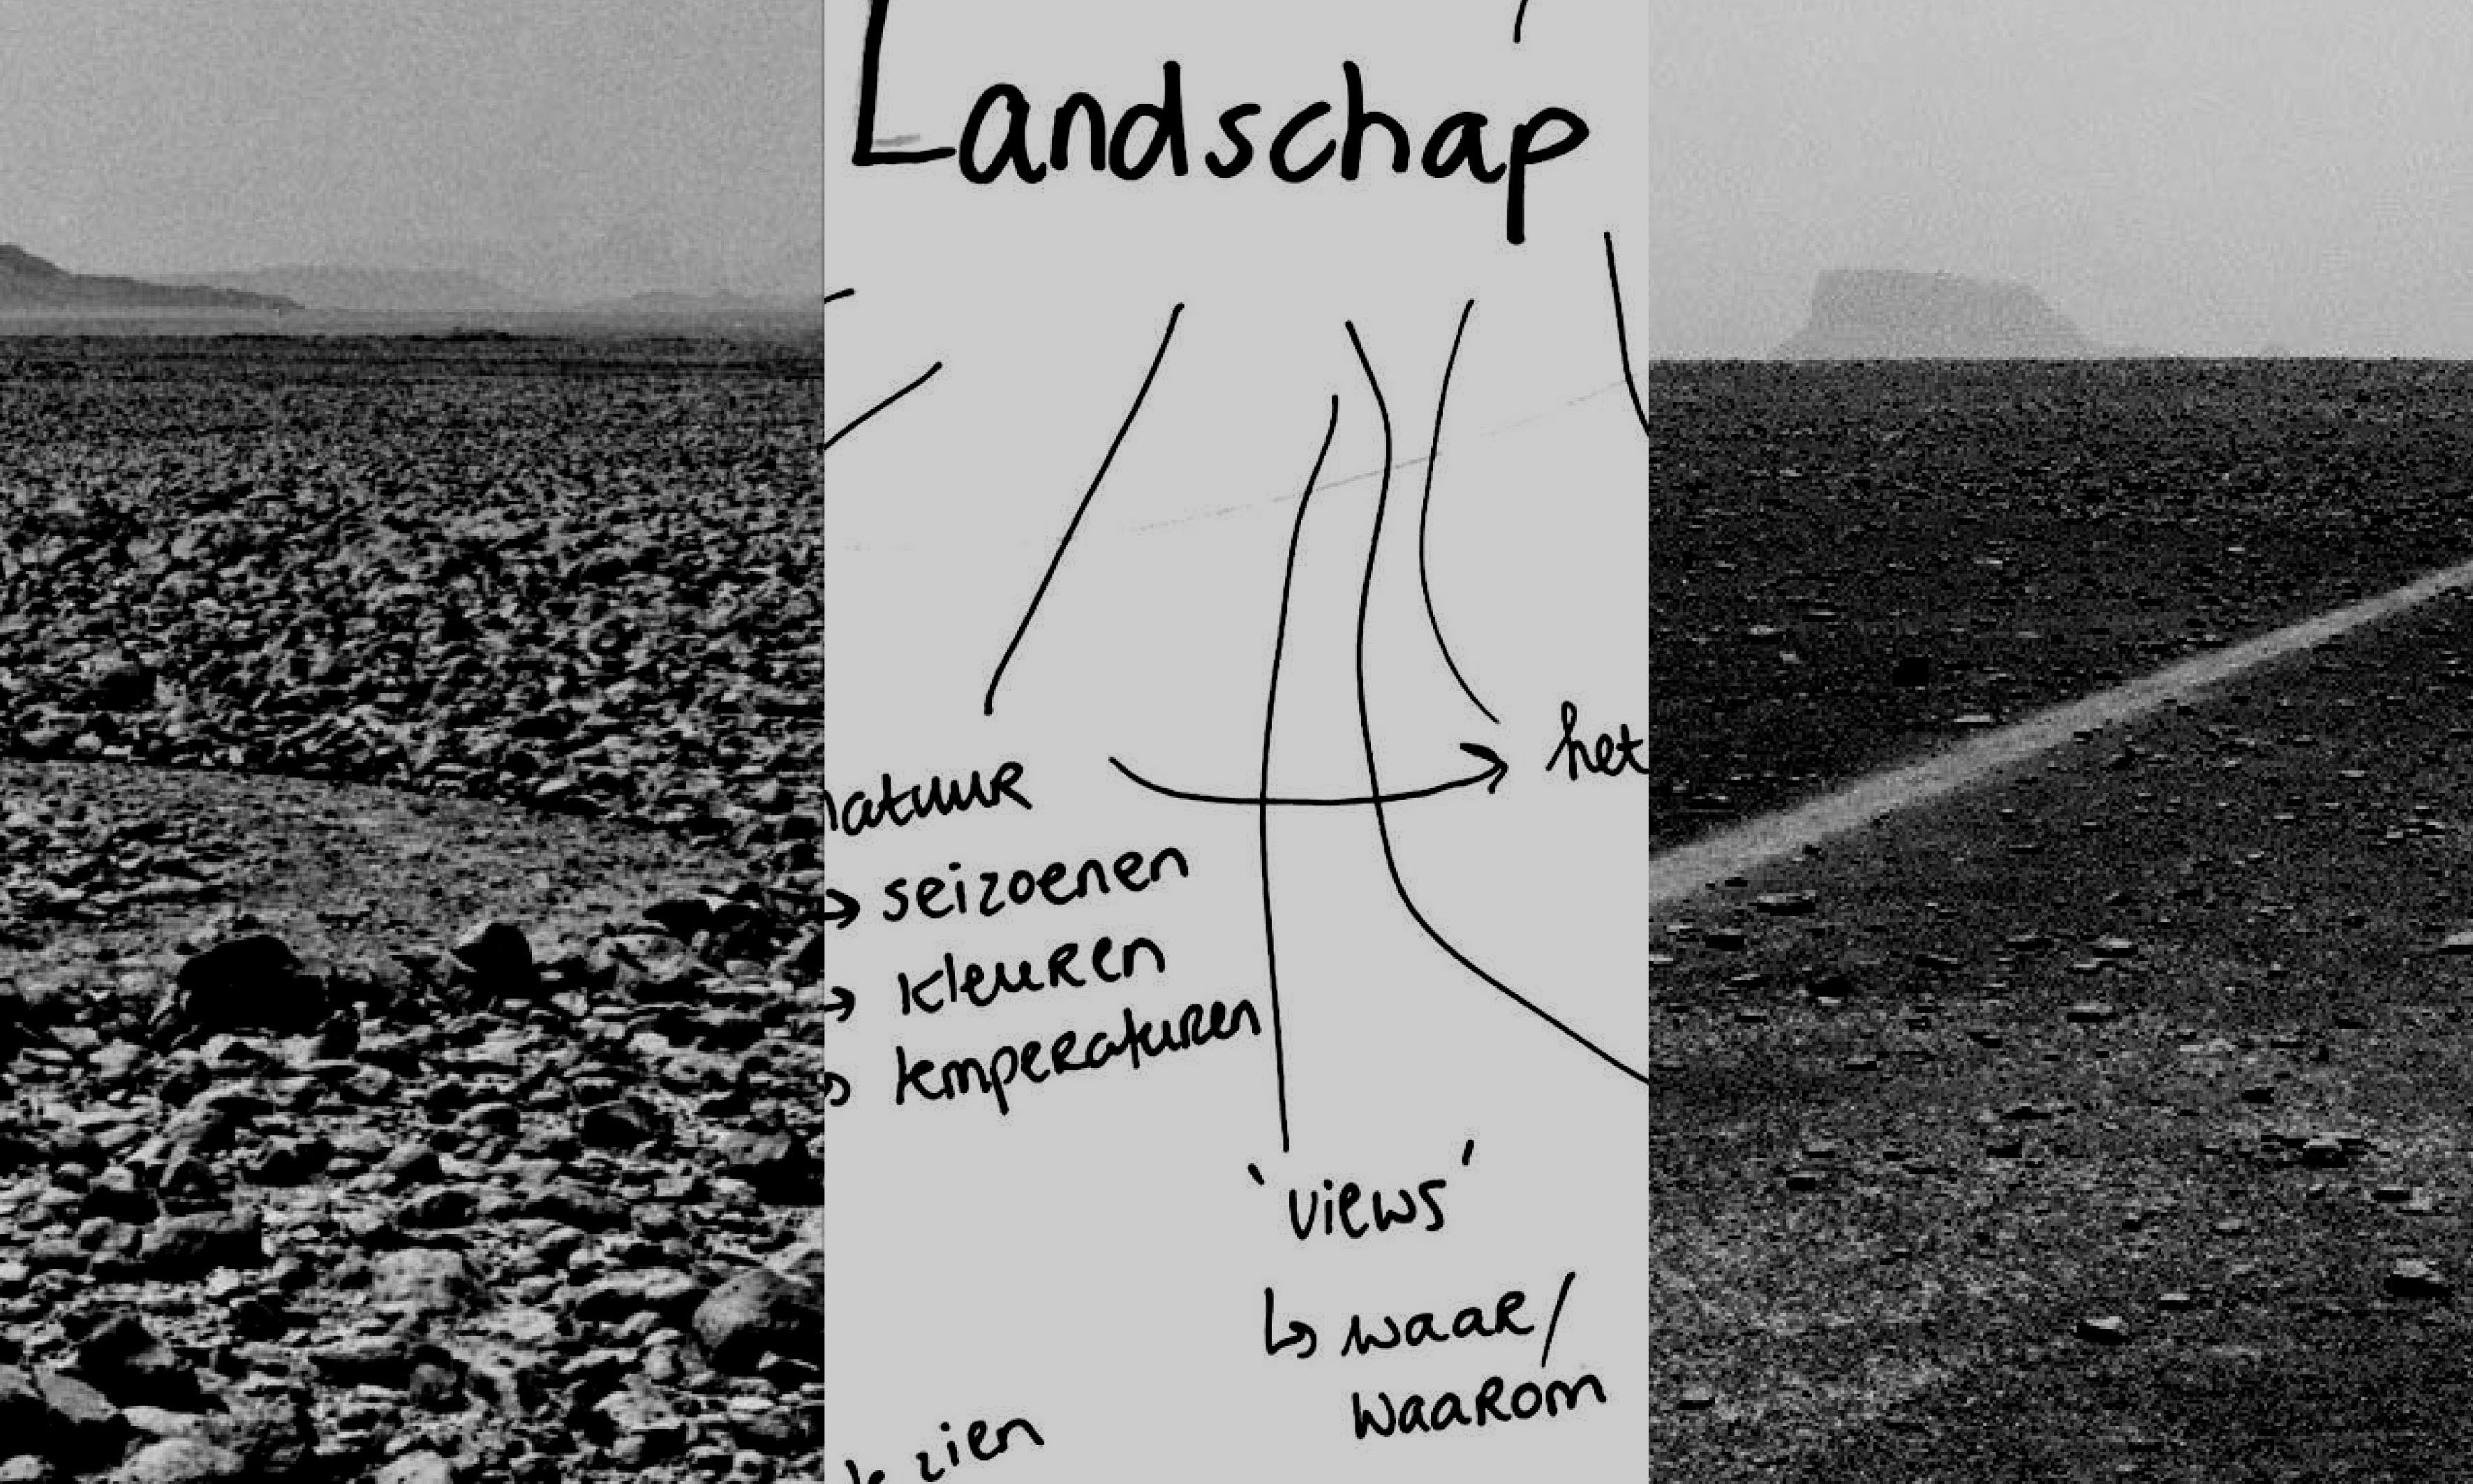 Landschap
natuur
het
→ seizoenen
→ kleuren
→ temperaturen
'views'
↳ waar/
waarom
zien